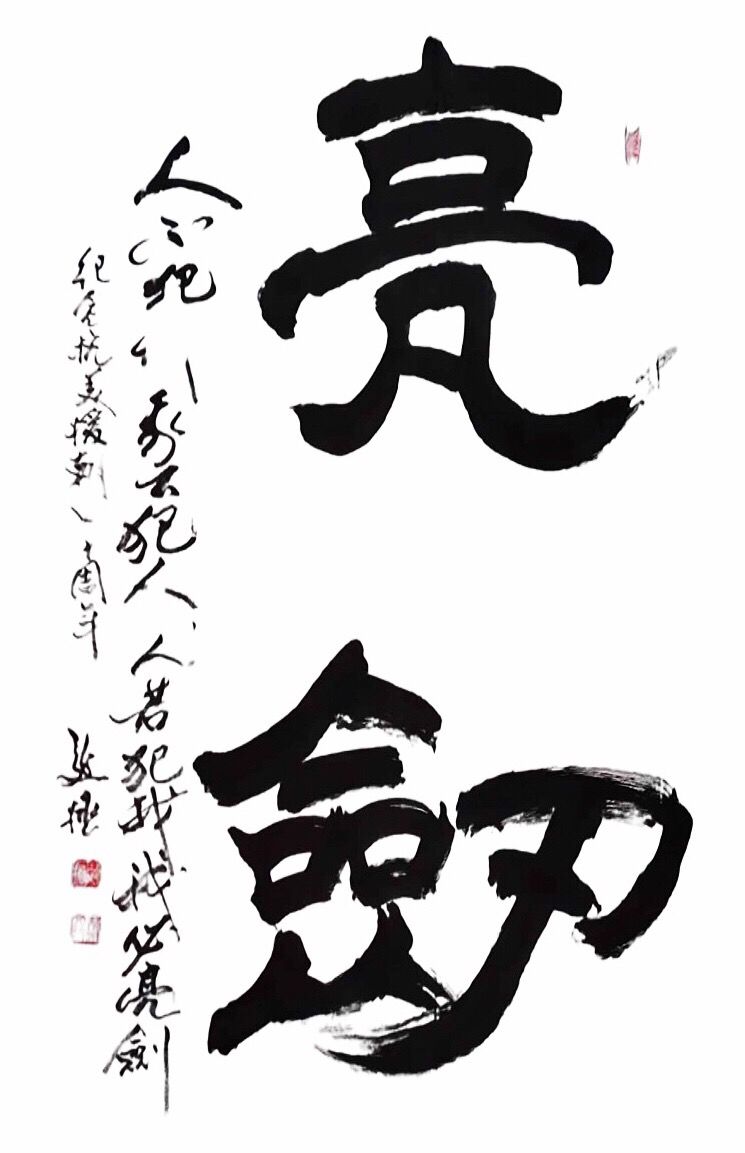 亮劒
人不犯我我不犯人人若犯我我必亮劍
紀念抗美援朝七十周年